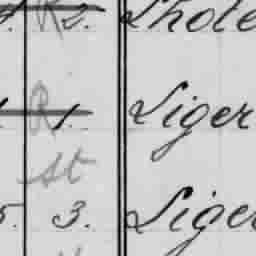 R 2. Shole
R 1. Siger
st
5. 3. Sige